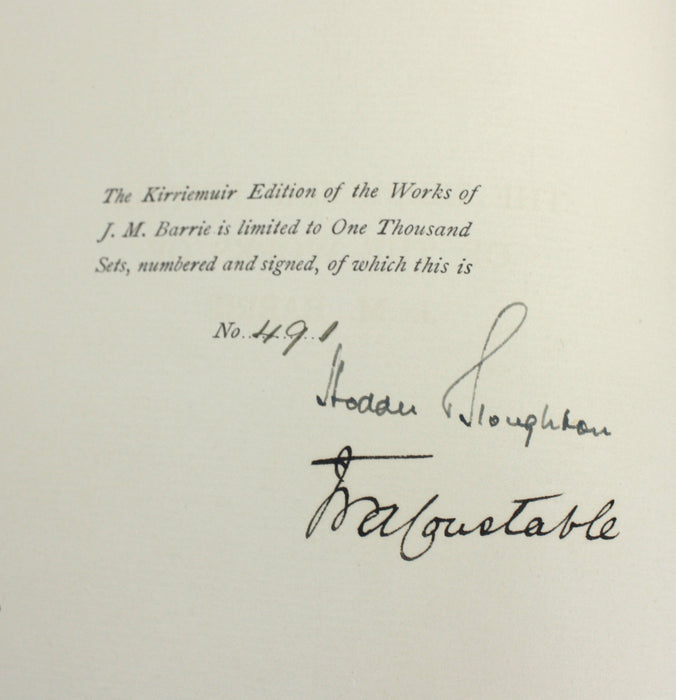 The Kirriemuir Edition of the Works of
J. M. Barrie is limited to One Thousand
Sets, numbered and signed, of which this is
No. 491
Hodder Stoughton
Constable